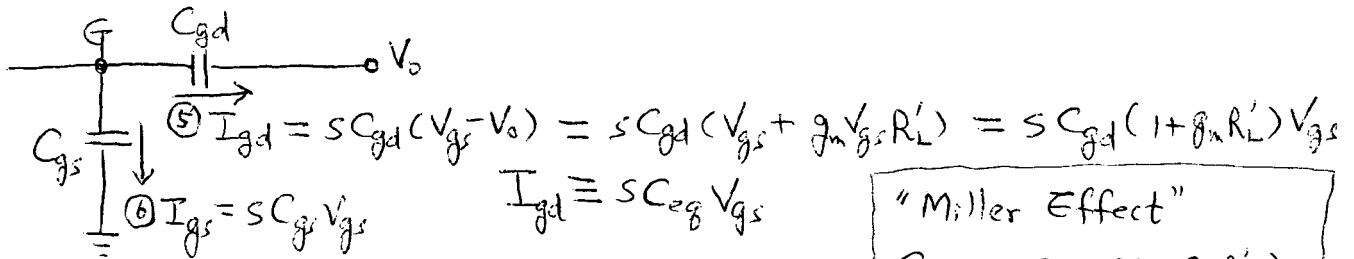 G C_gd
V_o
⑤ I_gd = sC_gd(V_gs - V_o) = sC_gd(V_gs + g_m V_gs R_L') = sC_gd(1 + g_m R_L')V_gs
C_gs
⑥ I_gs = sC_gs V_gs
I_gd ≡ sC_eq V_gs
"Miller Effect"